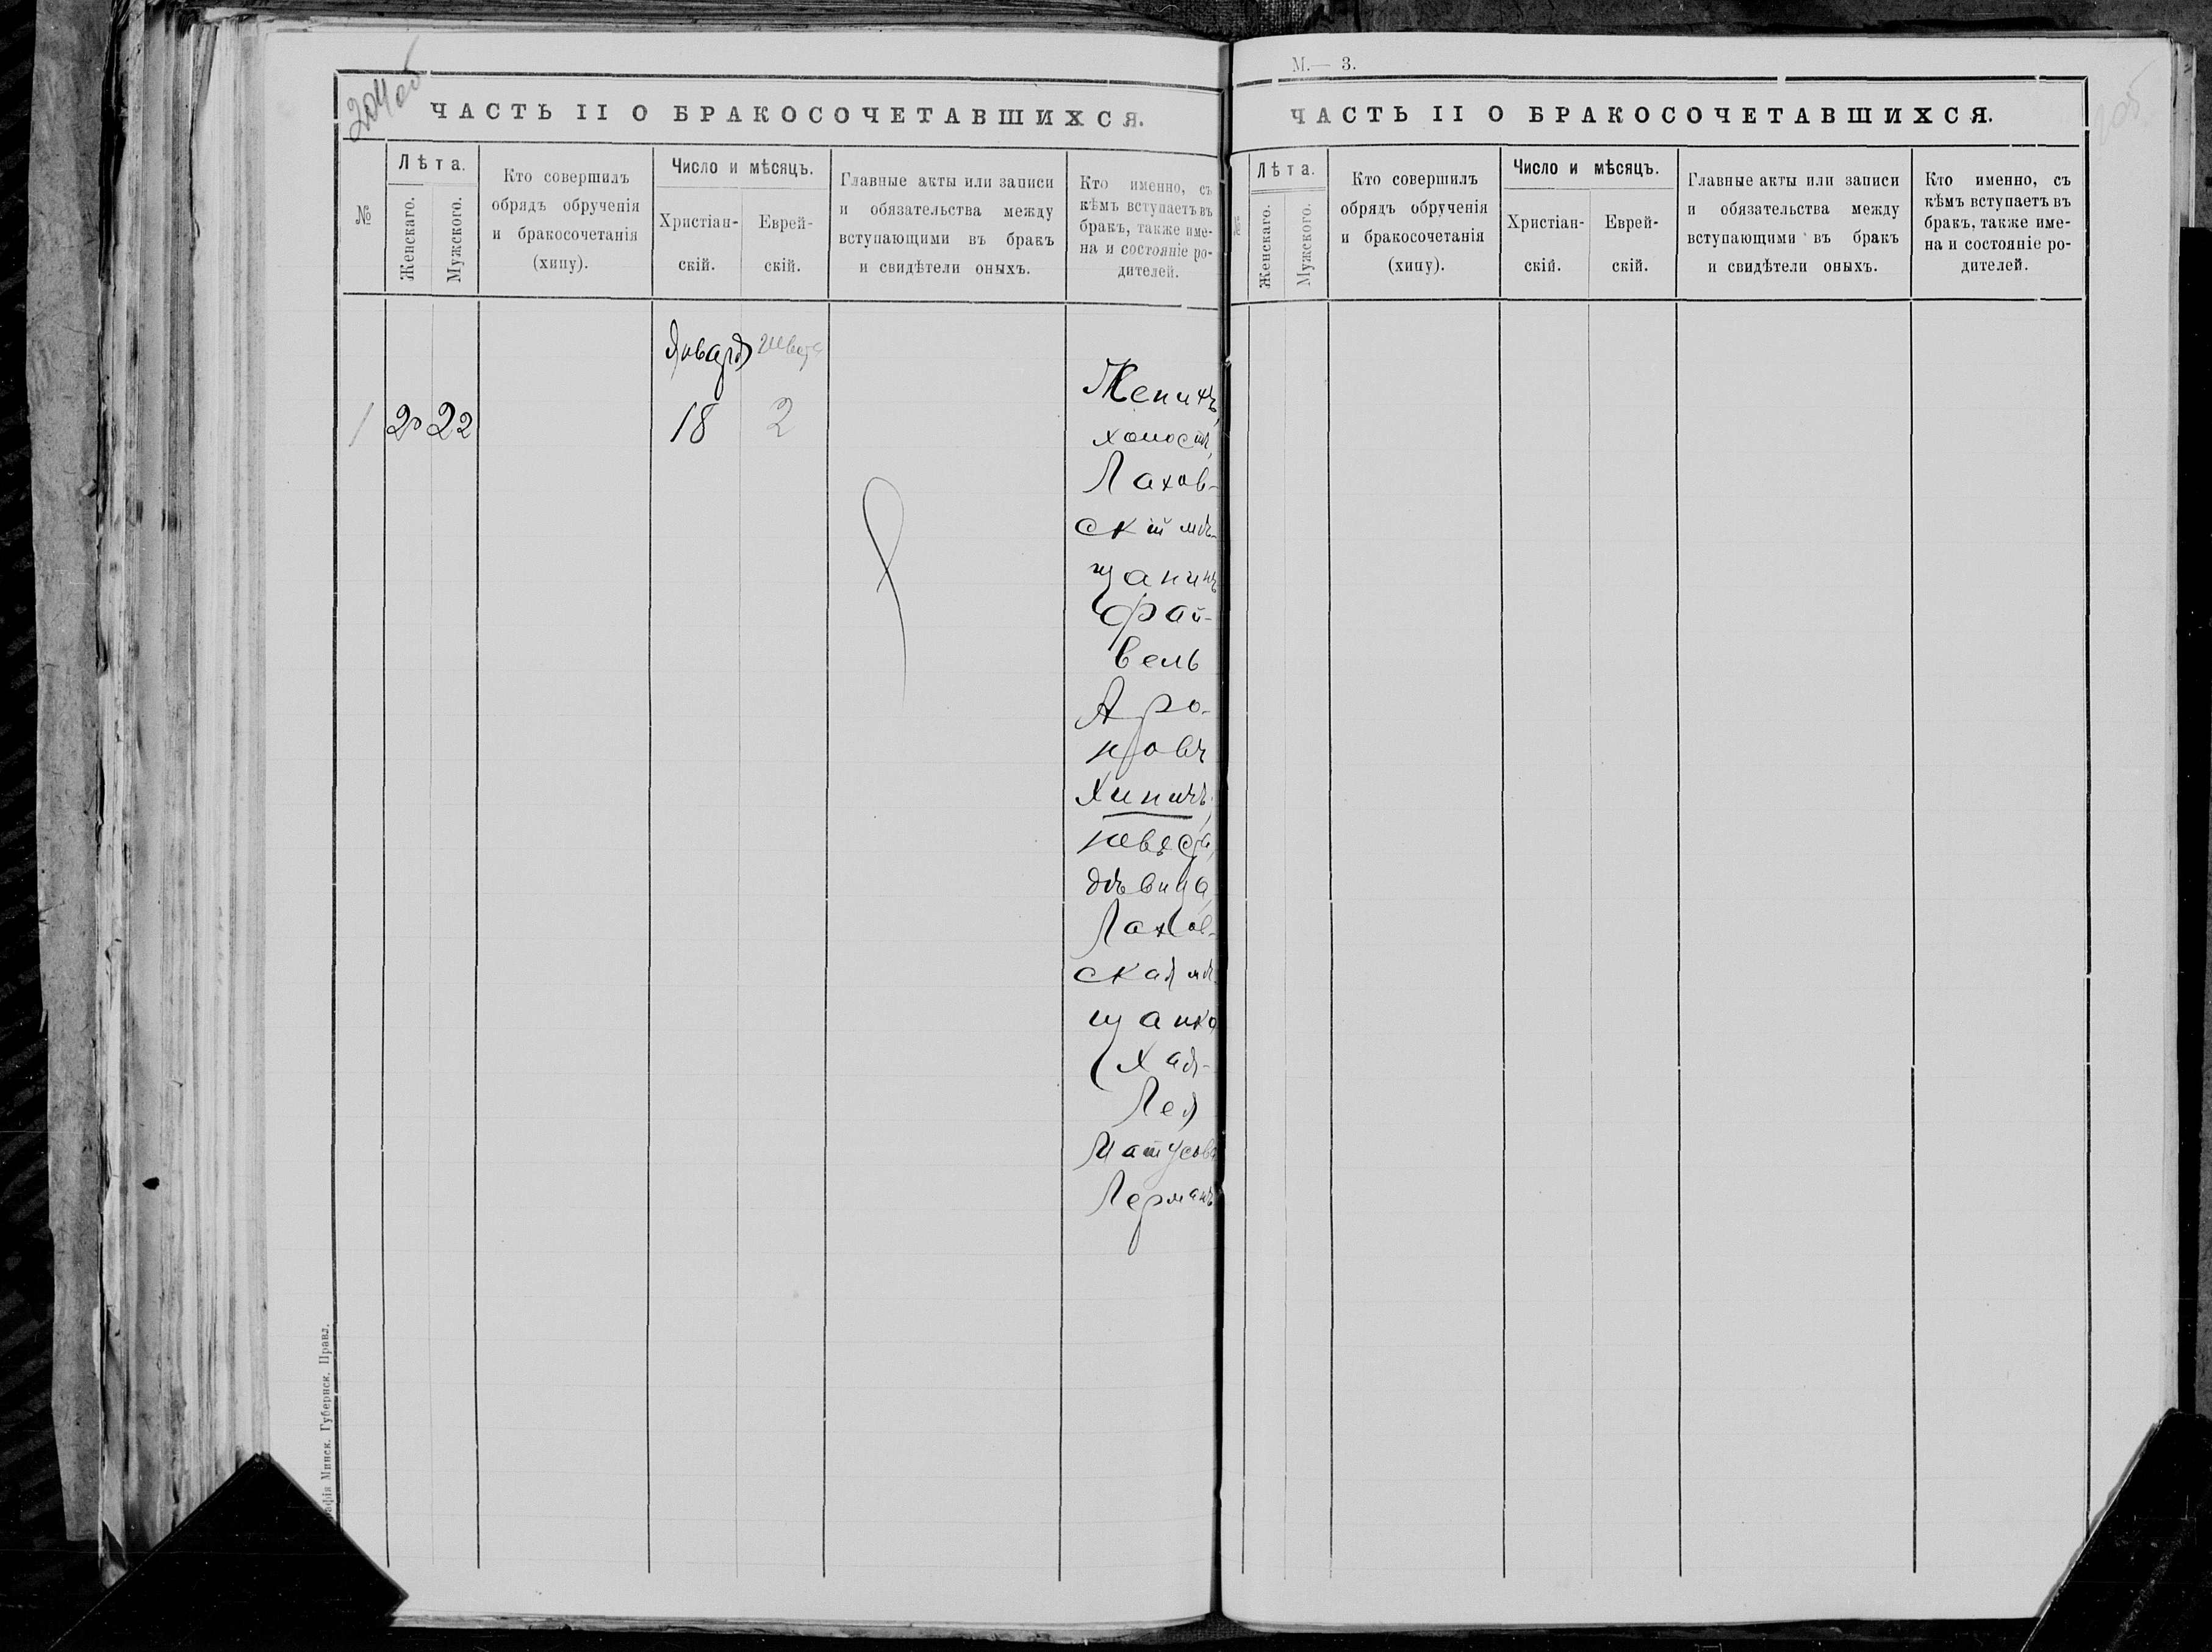 204об
ЧАСТЬ II О БРАКОСОЧЕТАВШИХСЯ.
№
Лѣта.
Женскаго.
Мужскаго.
Кто совершилъ
обрядъ обрученія
и бракосочетанія
(хипу).
Число и мѣсяцъ.
Христіан-
скій.
Еврей-
скій.
Главные акты или записи
и обязательства между
вступающими въ бракъ
и свидѣтели оныхъ.
Кто именно, съ
кѣмъ вступаетъ въ
бракъ, также име-
на и состояніе ро-
дителей.
Января
1 20 22 18 2
Женихъ,
холостъ,
Лахов-
скій мѣ-
щанинъ
Фай-
вель
Аро-
новъ
невѣста,
дѣвица,
Лахов-
ская мѣ-
щанка
Хая-
Лея
Матусова
Лерманъ
афія Минск. Губернск. Правл.
М.— 3.
205
ЧАСТЬ II О БРАКОСОЧЕТАВШИХСЯ.
№
Лѣта.
Женскаго.
Мужского.
Кто совершилъ
обрядъ обрученія
и бракосочетанія
(хипу).
Число и мѣсяцъ.
Христіан-
скій.
Еврей-
скій.
Главные акты или записи
и обязательства между
вступающими въ бракъ
и свидѣтели оныхъ.
Кто именно, съ
кѣмъ вступаетъ въ
бракъ, также име-
на и состояніе ро-
дителей.